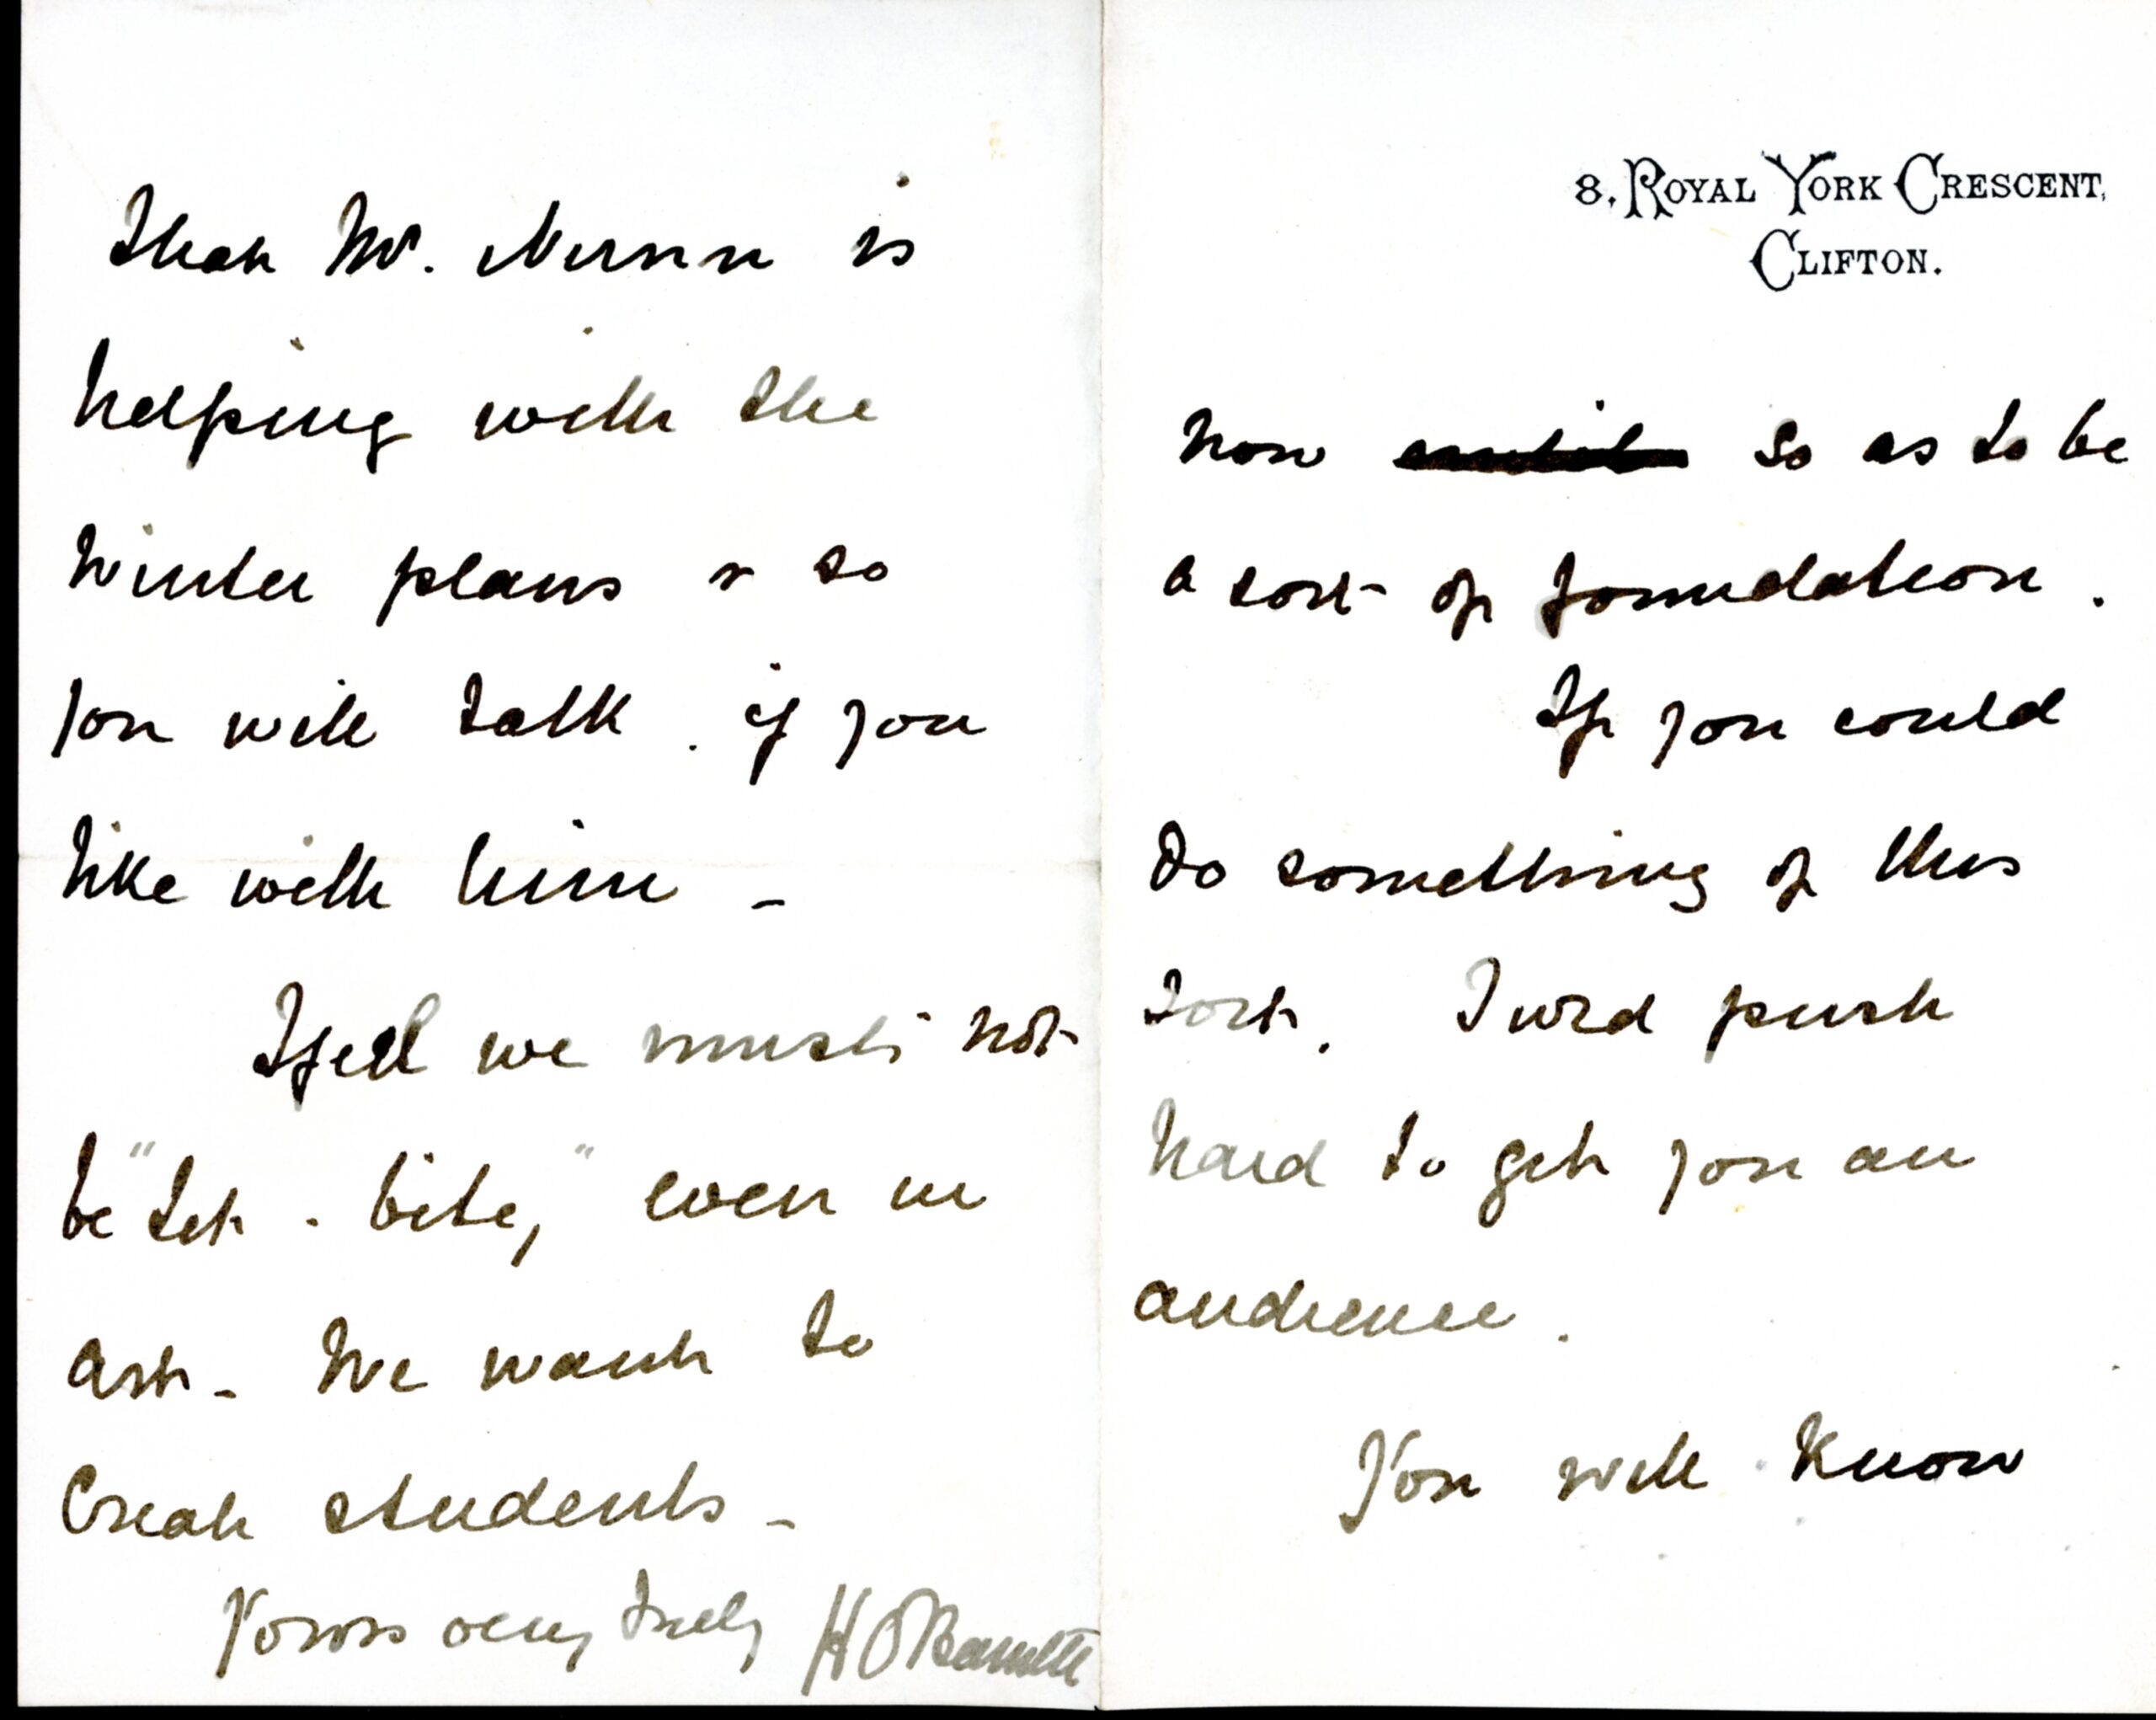 8, ROYAL YORK CRESCENT,
CLIFTON.
now until so as to be
a sort of foundation.
If you could
do something of this
sort. I wd push
hard to get you an
audience.
You will know
that Mr. Nunn is
helping with the
winter plans & so
you will talk. if you
like with him -
I feel we must not
be "tit - bity," even in
art - We want to
Creat students -
Yours very truly H O Barnett